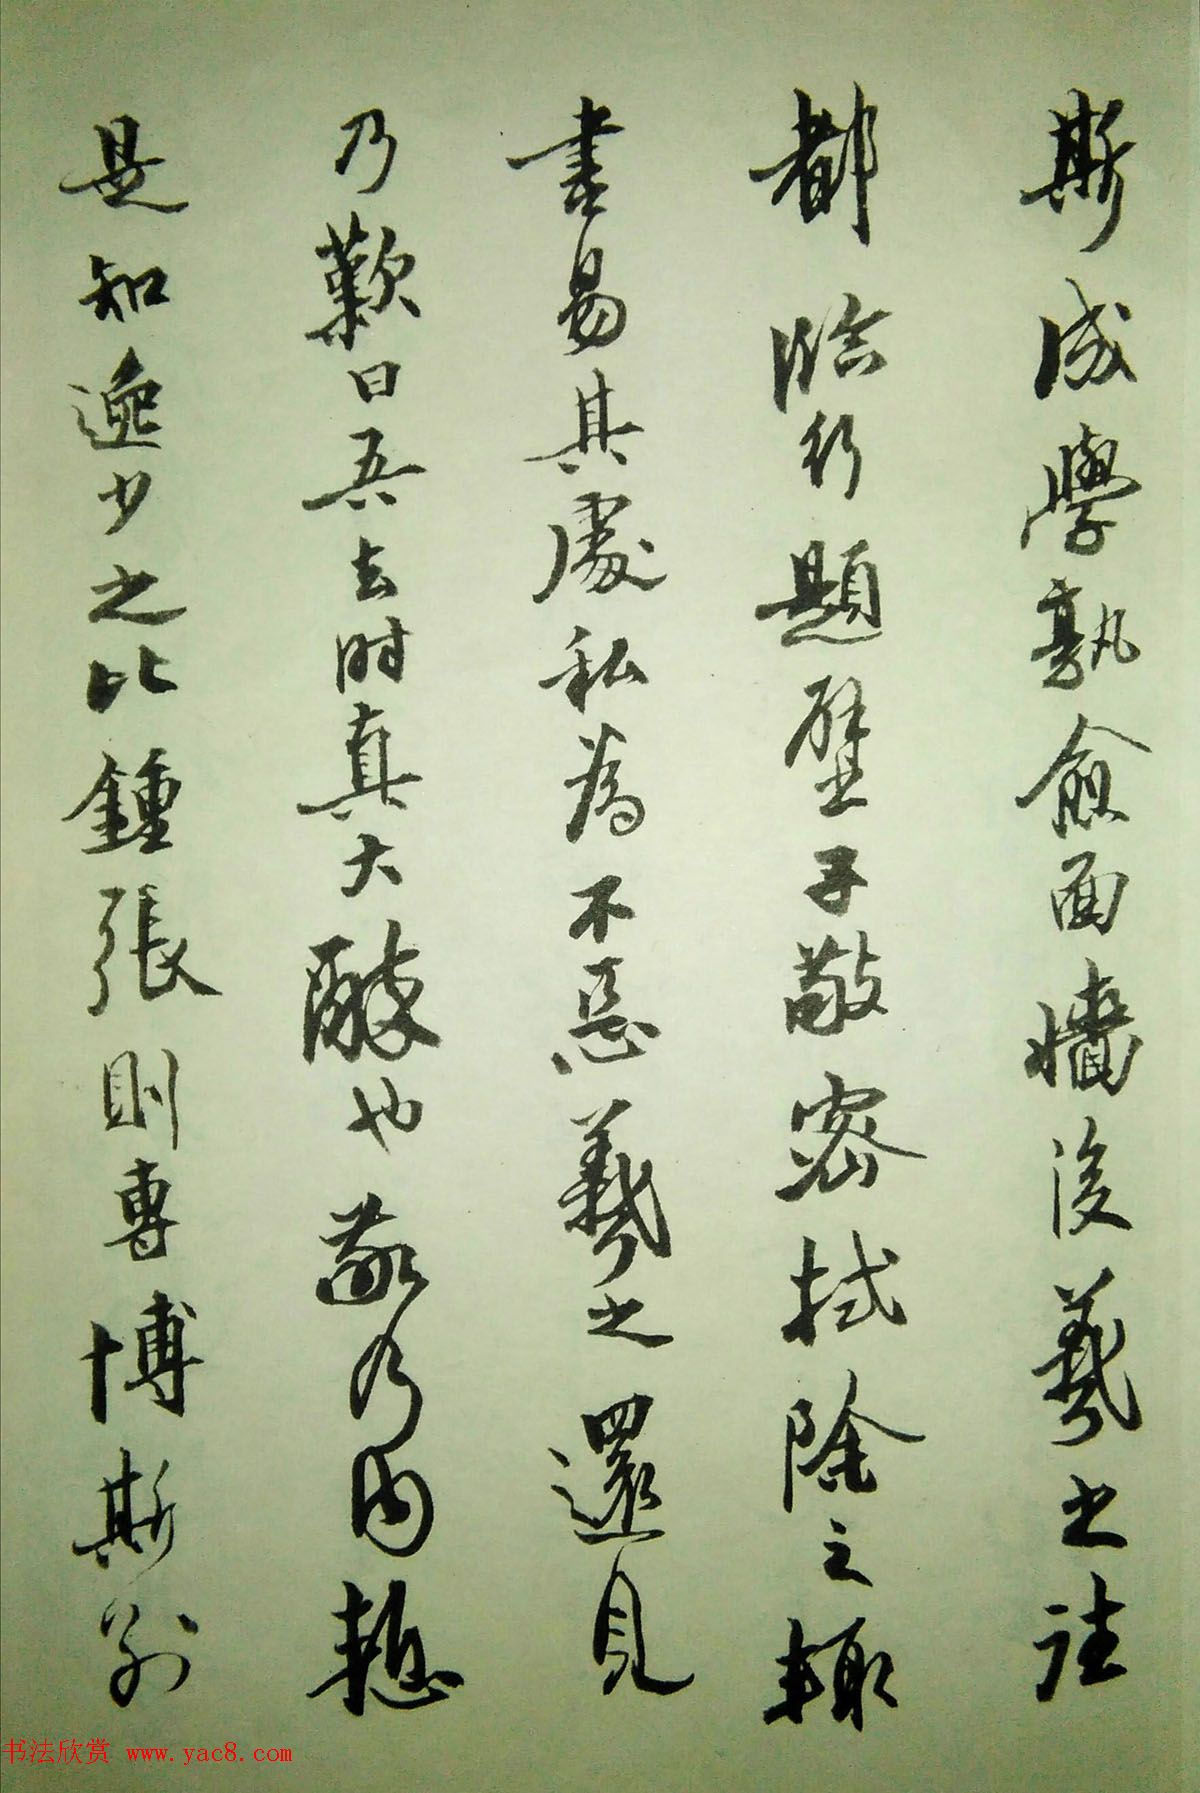 斯成學孰愈面墻後羲之往
都臨行題壁子敬密拭除之輙
書易其處私為不惡羲之還見
乃歎曰吾去时真大醉也敬乃内慙
是知逸少之比鍾張則專博斯别
书法欣赏 www.yac8.com